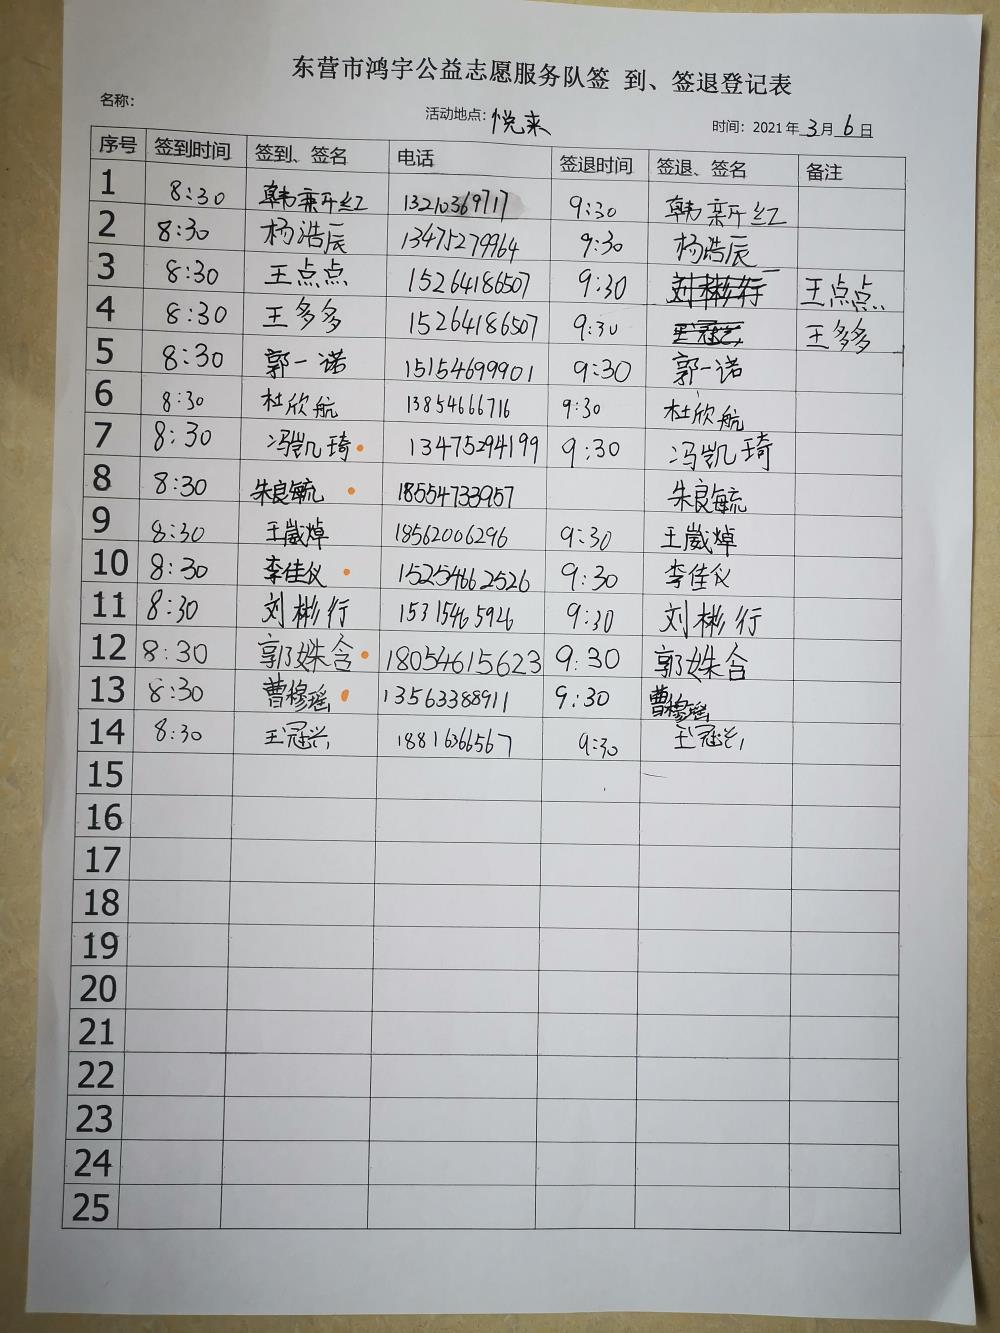 东营市鸿宇公益志愿服务队签 到、签退登记表
名称： 活动地点：悦来 时间：2021年3月6日
序号 签到时间 签到、签名 电话 签退时间 签退、签名 备注
1 8:30 韩新红 13210369717 9:30 韩新红
2 8:30 杨浩辰 13475279964 9:30 杨浩辰
3 8:30 王点点 15264186507 9:30 刘彬行 王点点
4 8:30 王多多 15264186507 9:30 王多多
5 8:30 郭一诺 15154699901 9:30 郭一诺
6 8:30 杜欣航 13854666716 9:30 杜欣航
7 8:30 冯凯琦 13475294199 9:30 冯凯琦
8 8:30 朱良毓 18554733957 朱良毓
9 8:30 18562006296 9:30
10 8:30 李佳仪 15254662526 9:30 李佳仪
11 8:30 刘彬行 15315465926 9:30 刘彬行
12 8:30 郭姝含 18054615623 9:30 郭姝含
13 8:30 曹穆瑶 13563388911 9:30 曹穆瑶
14 8:30 18816366567 9:30
15
16
17
18
19
20
21
22
23
24
25